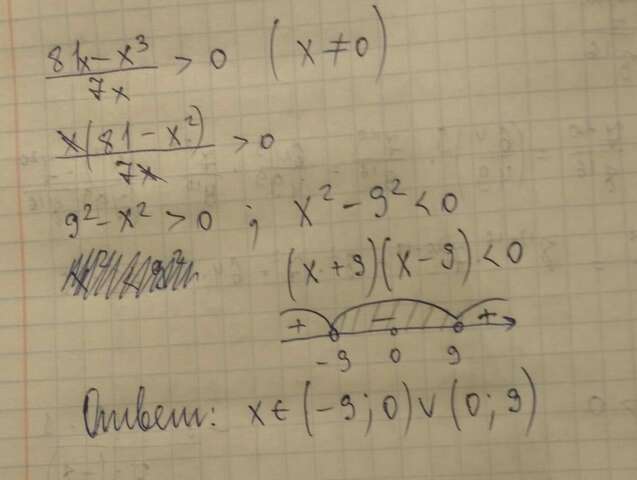 81x − x³ / 7x > 0 (x ≠ 0)
x(81 − x²) / 7x > 0
9² − x² > 0 ; x² − 9² < 0
(x + 9)(x − 9) < 0
+ − +
−9 0 9
Ответ: x ∈ (−9; 0) ∨ (0; 9)